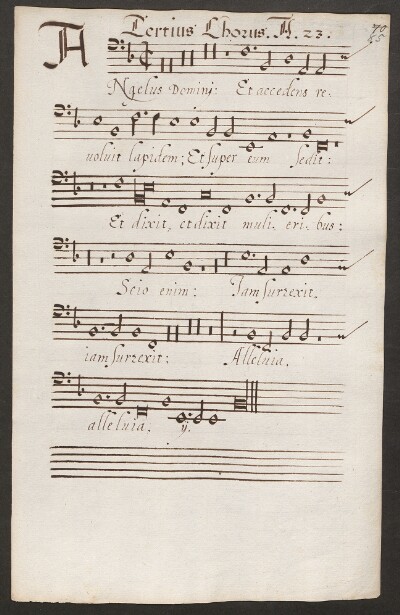 Tertius Chorus. A. 23.
A
Ngelus Domini: Et accedens re-
uoluit lapidem; Et super eum sedit:
Et dixit, et dixit muli. eri. bus:
Scio enim: Iam surrexit.
iam surrexit: Alleluia.
alleluia. ij.